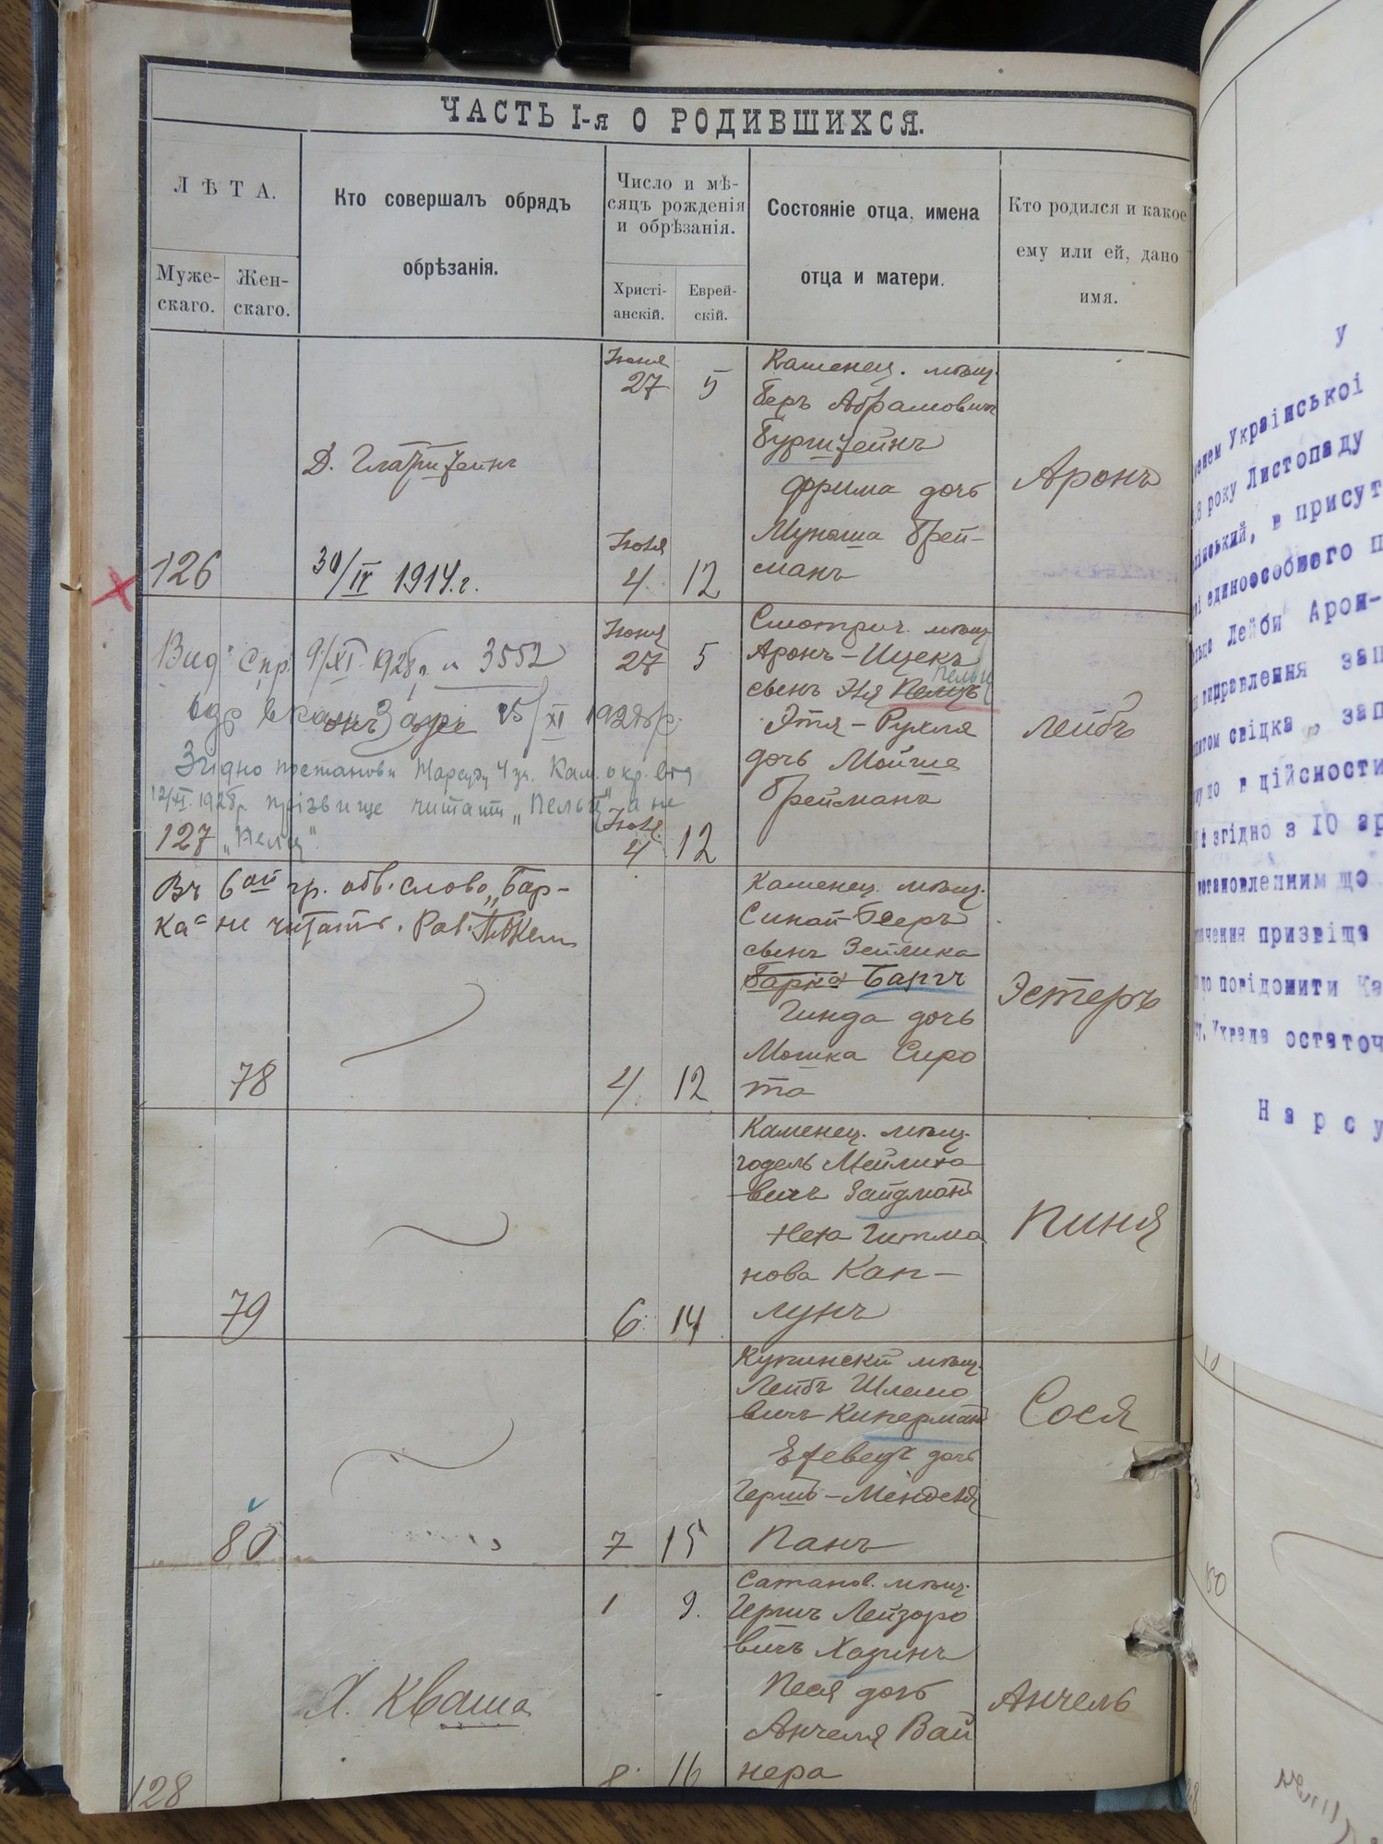 ЧАСТЬ I-я О РОДИВШИХСЯ.
ЛѢТА.
Муже-
скаго.
Жен-
скаго.
Кто совершалъ обрядъ
обрѣзанія.
Число и мѣ-
сяцъ рожденія
и обрѣзанія.
Христі-
анскій.
Еврей-
скій.
Состояніе отца, имена
отца и матери.
Кто родился и какое
ему или ей, дано
имя.
126
30/IV 1914 г.
Іюня
27 5
Іюля
4 12
Каменец. мѣщ.
Беръ Абрамовичъ
Фрима дочь
Брей-
манъ
Аронъ
Вид. Спр. 9/XI 1928 р. 3552
15/XI 1928 р.
Згідно постанови Нарсуду 4 уч. Кам. окр. від
12/XI 1928 р. прізвище читати „Пельц" а не
„Пелц".
127
Іюня
27 5
Іюля
4 12
Смотрич. мѣщ.
Аронъ-Ицекъ
Пельц
Этя-Рухля
дочь Мойше
Брейманъ
Лейбъ
Въ 6ой гр. обв. слово „Бар-
ка" не читать. Рав.
78
4 12
Каменец. мѣщ.
Синай Беръ
сынъ Зейлика
Барка Баргъ
Гинда дочь
Мошка Сиро
та
Эстеръ
79
6 14
Каменец. мѣщ.
Годель Мейлихо
вичъ Зайдманъ
нова Кап-
лунъ
Пиня
80
7 15
Купинскій мѣщ.
Лейбъ Шлемо
вичъ Киперманъ
дочь
Гершъ-Менделя
Панъ
Сося
128
Х. Кваша
1 9.
8 16
Сатанов. мѣщ.
Гершъ Лейзоро
вичъ Хазинъ
Песя дочь
Анчеля Вай
нера
Анчель
У
Української
року Листопаду
в присут
единоособного
Лейби Арон-
виправлення
свідка, зап
в дійсности
згідно з 10 ар
що
призвіща
повідомити Ка
Ухвала остаточ
Нарсу